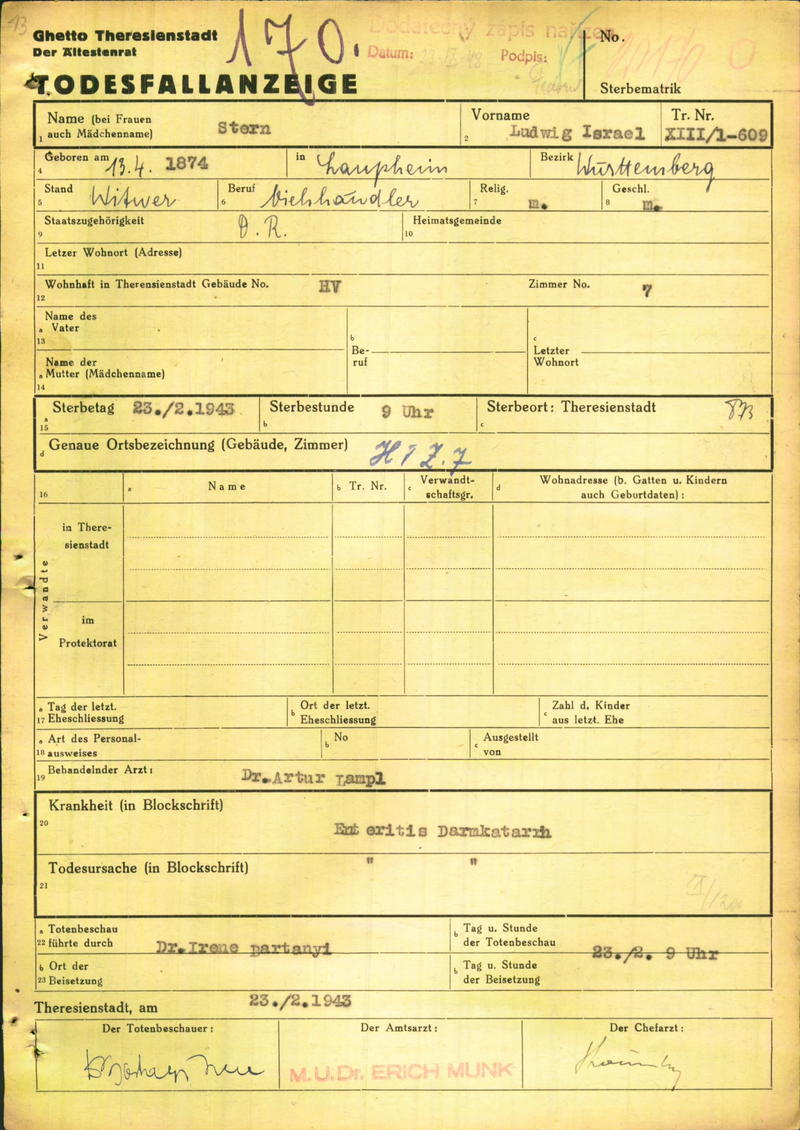 13
Ghetto Theresienstadt
Der Ältestenrat
170.
Dodatečný zápis
Datum:
Podpis:
No.
TODESFALLANZEIGE
Sterbematrik
Name (bei Frauen
1 auch Mädchenname)
Stern
Vorname
2 Ludwig Israel
Tr. Nr.
XIII/1-609
Geboren am 13.4. 1874
4
in Laupheim
Bezirk Württemberg
Stand
5 Witwer
Beruf
6 Viehhändler
Relig.
7 m.
Geschl.
8 m.
Staatszugehörigkeit
9
D. R.
Heimatsgemeinde
10
Letzer Wohnort (Adresse)
11
Wohnhaft in Therensienstadt Gebäude No. HV
12
Zimmer No. 7
Name des
a Vater
13
b
Be-
ruf
c
Letzter
Wohnort
Name der
a Mutter (Mädchenname)
14
Sterbetag 23./2.1943
a
15
Sterbestunde 9 Uhr
b
Sterbeort: Theresienstadt
c
Genaue Ortsbezeichnung (Gebäude, Zimmer)
d
Z. 7
16
a Name
b Tr. Nr.
c Verwandt-
schaftsgr.
d Wohnadresse (b. Gatten u. Kindern
auch Geburtdaten):
Verwandte
in There-
sienstadt
im
Protektorat
a Tag der letzt.
17 Eheschliessung
b Ort der letzt.
Eheschliessung
c Zahl d. Kinder
aus letzt. Ehe
a Art des Personal-
18 ausweises
b No
c Ausgestellt
von
19 Behandelnder Arzt:
Dr.Artur Lampl
Krankheit (in Blockschrift)
20
Ent eritis Darmkatarrh
Todesursache (in Blockschrift) " "
21
a Totenbeschau
22 führte durch
Dr.Irene Partanyi
b Tag u. Stunde
der Totenbeschau
23./2. 9 Uhr
b Ort der
23 Beisetzung
b Tag u. Stunde
der Beisetzung
Theresienstadt, am 23./2.1943
Der Totenbeschauer:
Der Amtsarzt:
M.U.Dr. ERICH MUNK
Der Chefarzt: